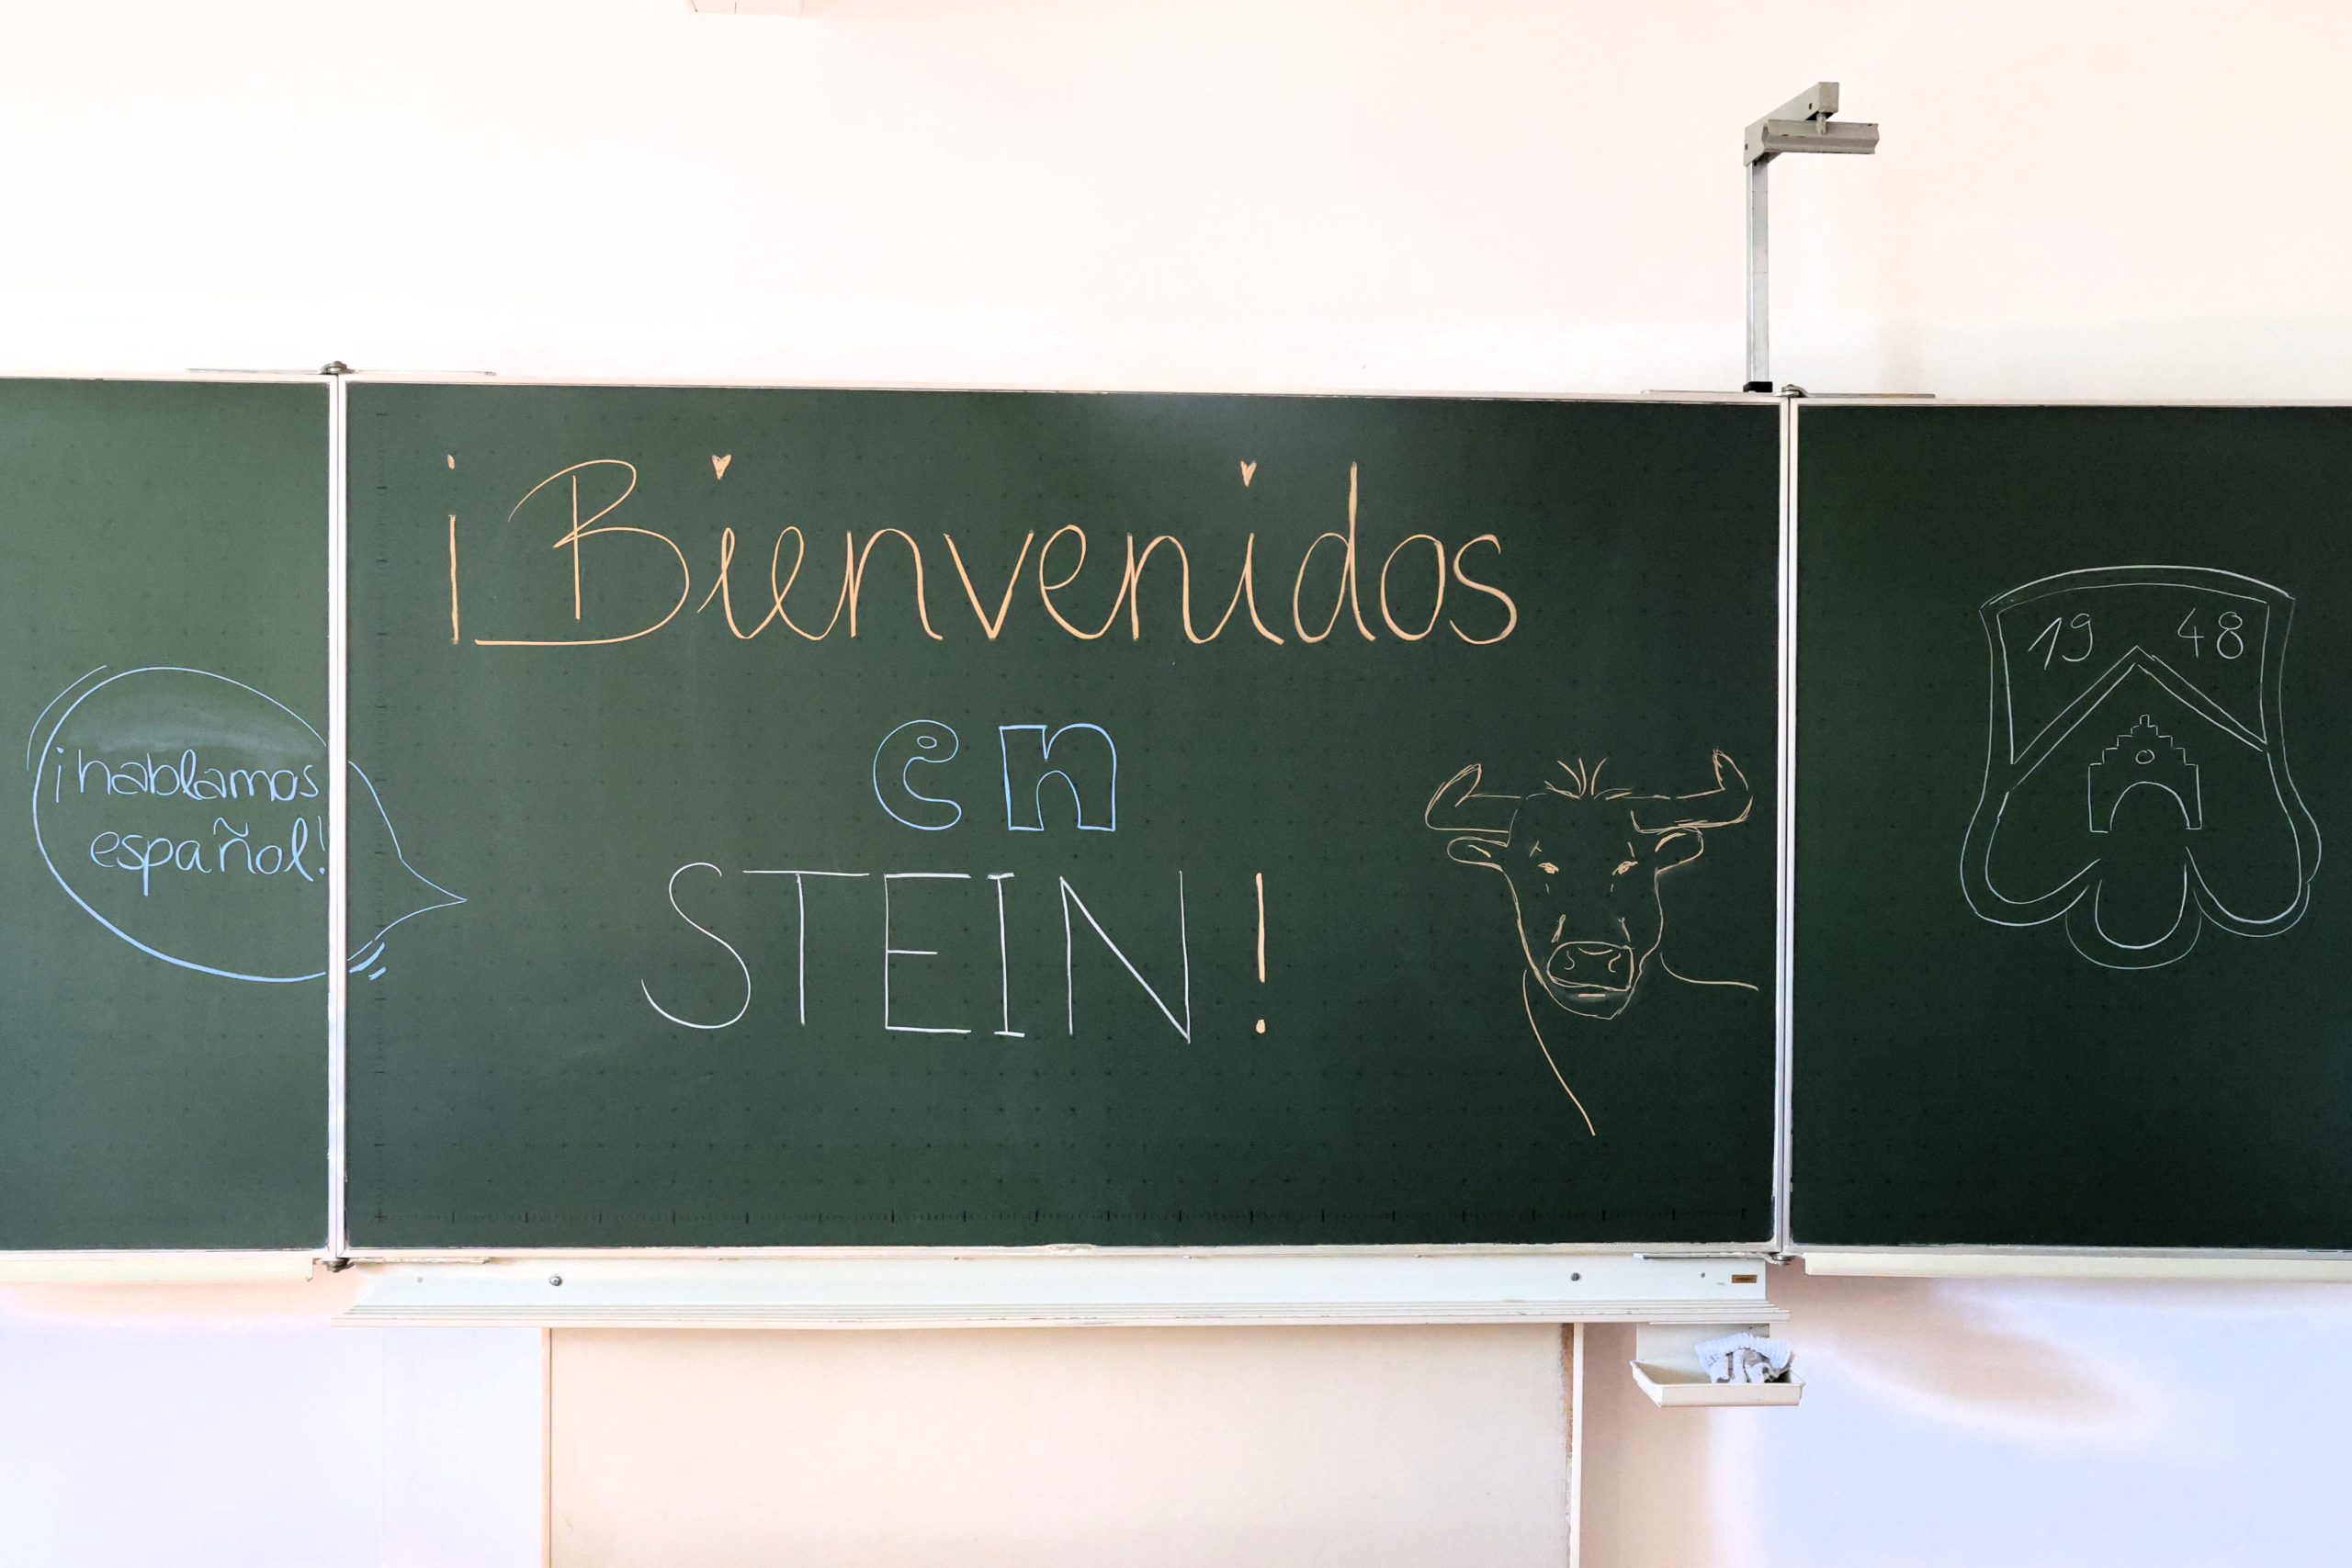 ¡hablamos
español!
¡Bienvenidos
en
STEIN!
19 48